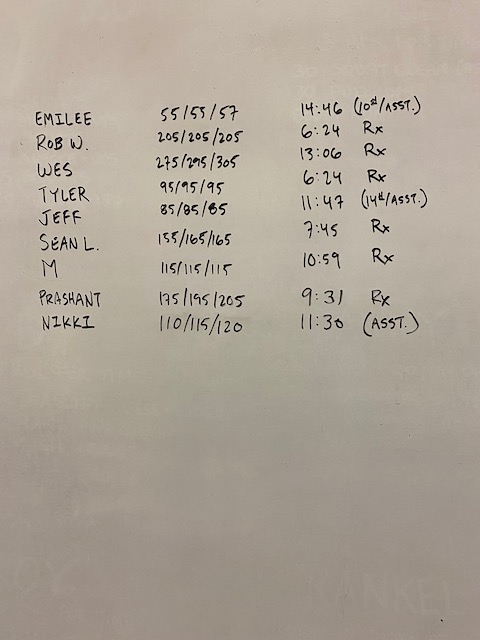 EMILEE 55/55/57 14:46 (10#/ASST.)
ROB W. 205/205/205 6:24 Rx
WES 275/295/305 13:06 Rx
TYLER 95/95/95 6:24 Rx
JEFF 85/85/85 11:47 (14#/ASST.)
SEAN L. 155/165/165 7:45 Rx
M 115/115/115 10:59 Rx
PRASHANT 175/195/205 9:31 Rx
NIKKI 110/115/120 11:30 (ASST.)